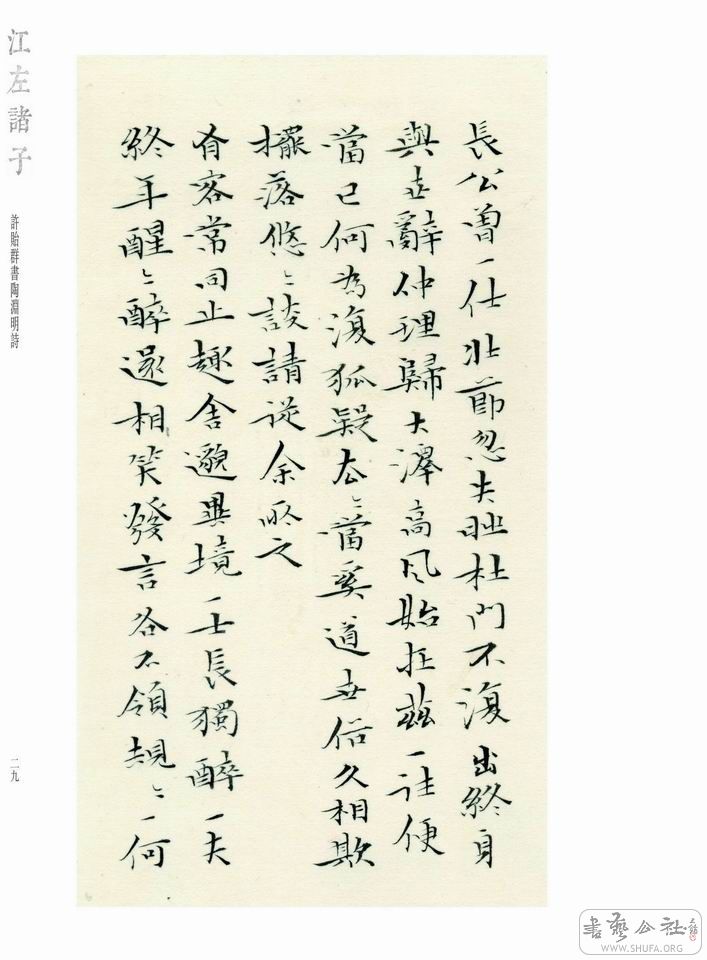 江左諸子
許貽群書陶淵明詩
二九
長公曾一仕壯節忽失時杜門不復出終身
與世辭仲理歸大澤高風始在茲一往便
當已何為復狐疑去〻當奚道世俗久相欺
擺落悠〻談請從余所之
有客常同止趣舍邈異境一士長獨醉一夫
終年醒〻醉還相笑發言各不領規〻一何
書藝公社
WWW.SHUFA.ORG